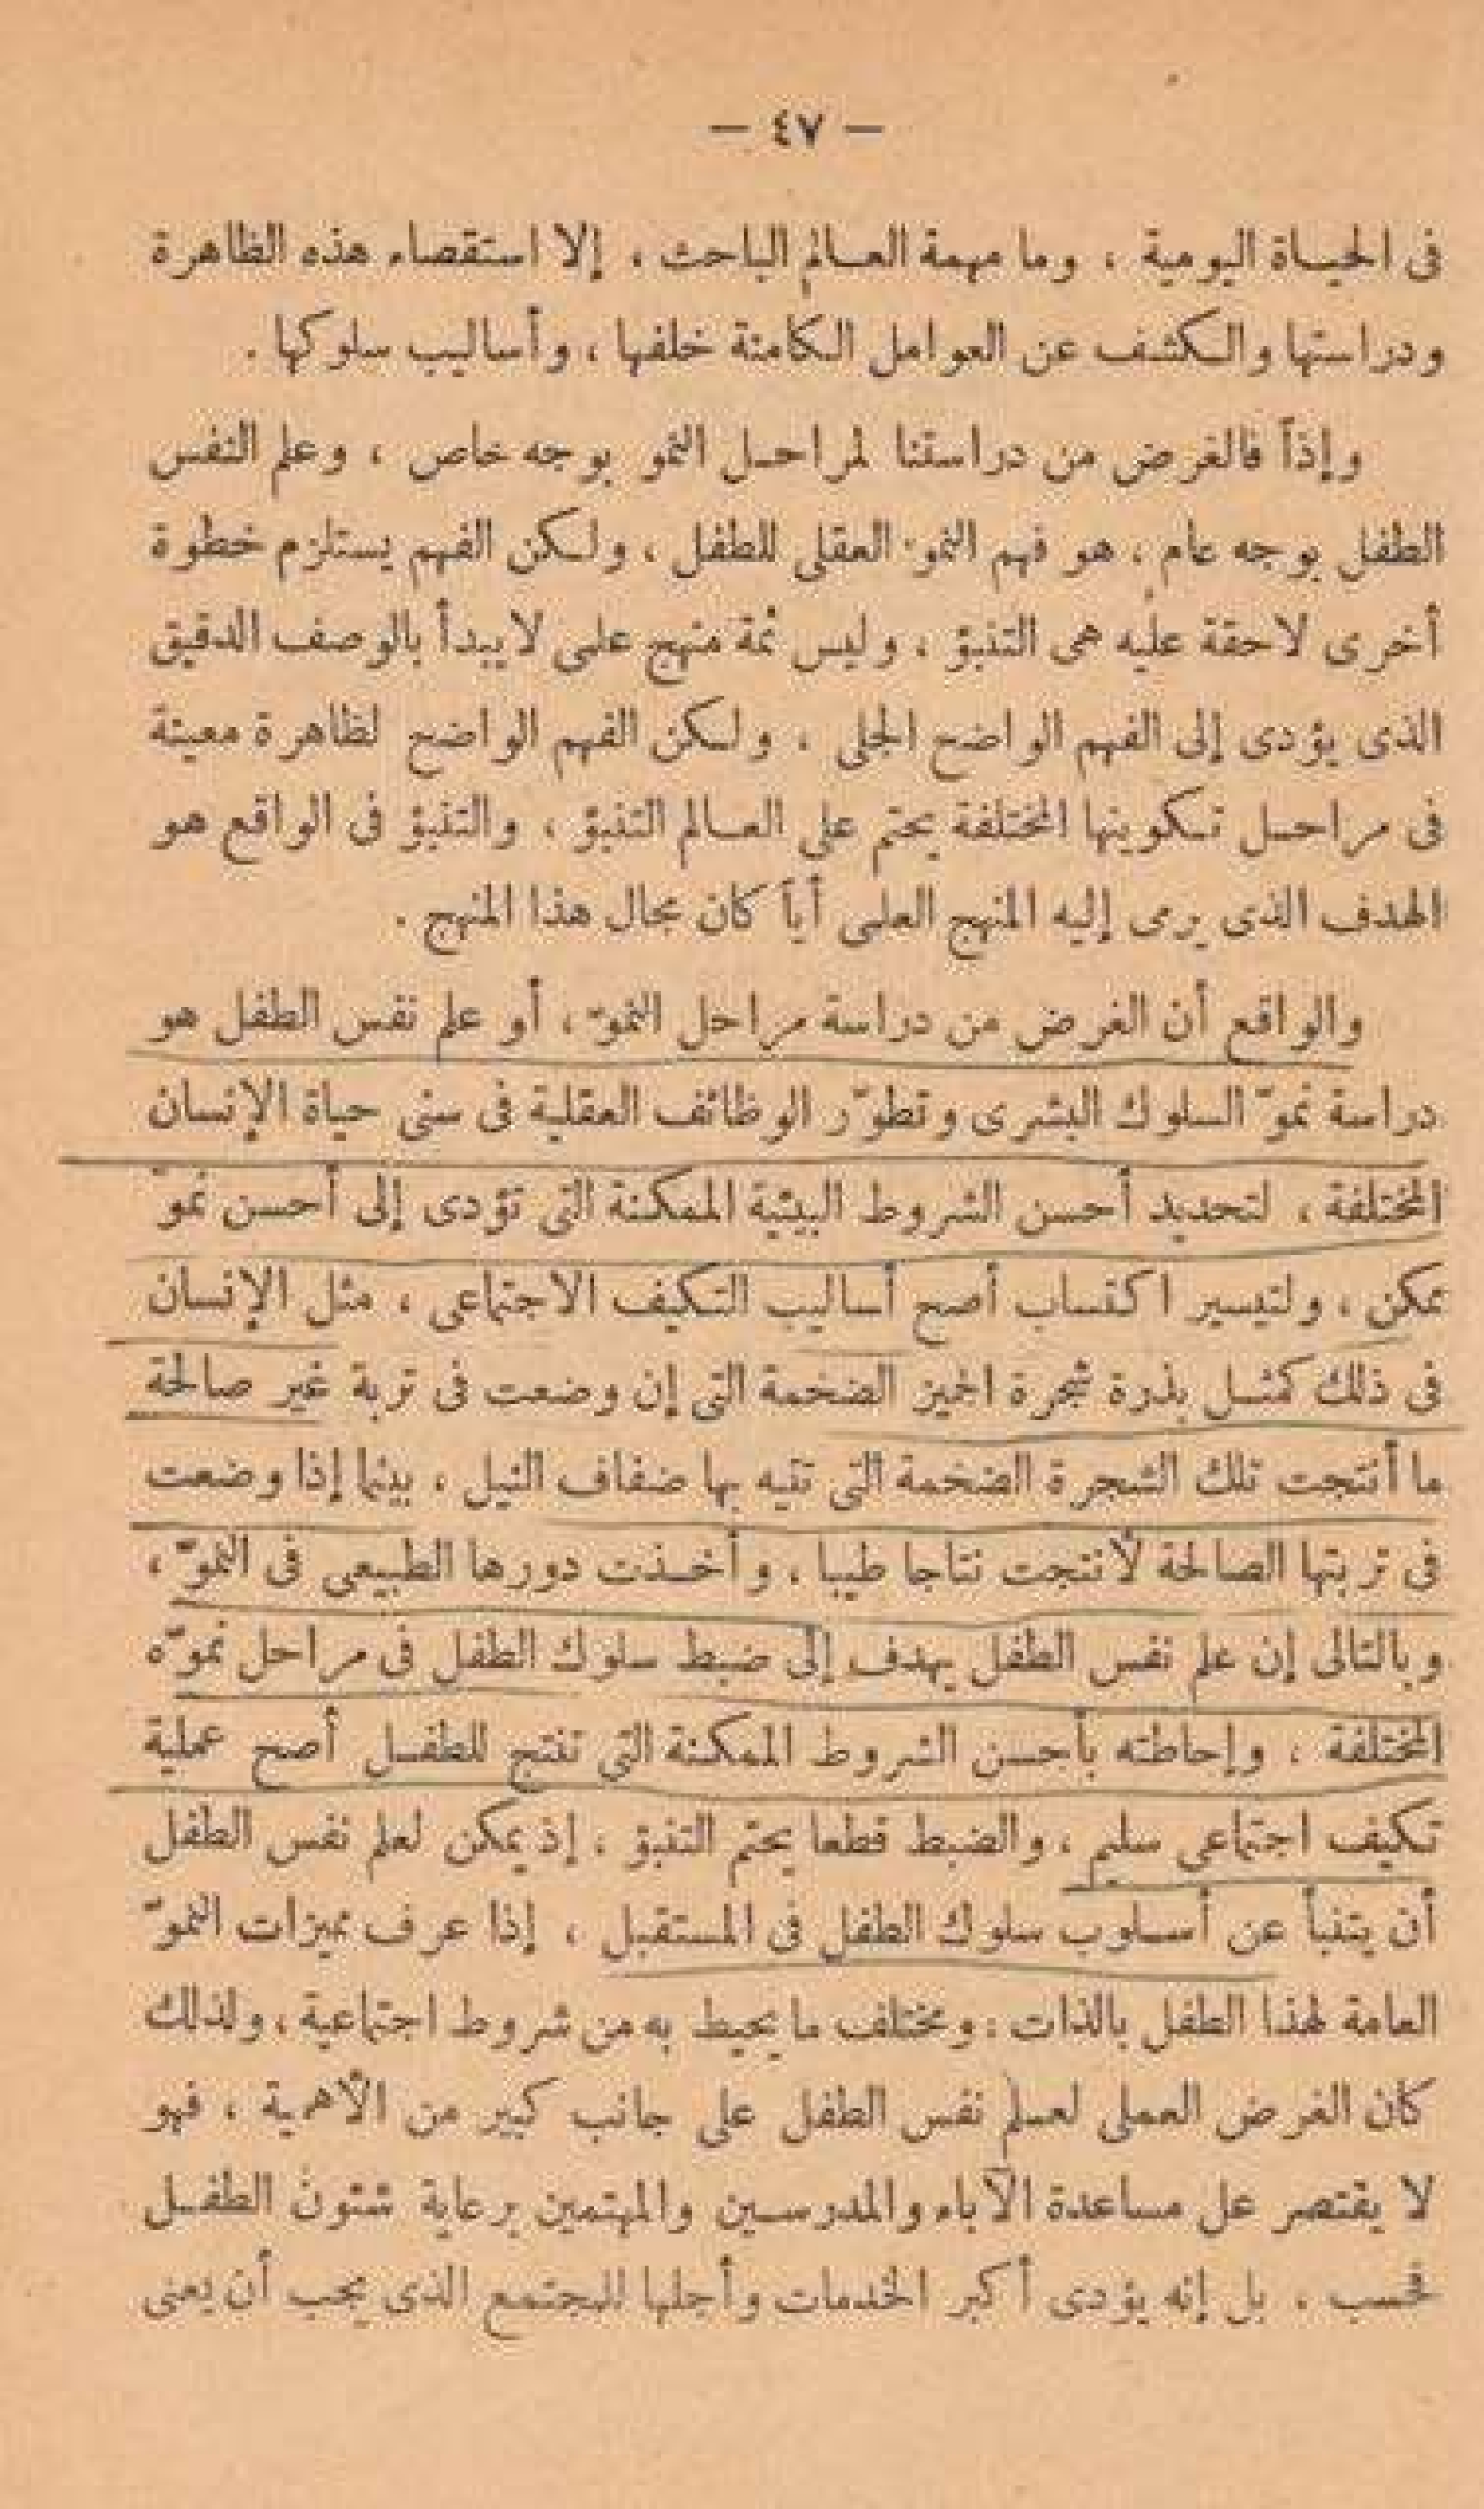 — ٤٧ —
فى الحيـاة اليومية ، وما مهمة العـالم الباحث ، إلا استقصاء هذه الظاهرة
ودراستها والـكشف عن العوامل الـكامنة خلفها ، وأساليب سلوكها .
وإذاً فالغرض من دراستنا لمراحـل النمو بوجه خاص ، وعلم النفس
الطفل بوجه عام ، هو فهم النموّ العقلى للطفل ، ولـكن الفهم يستلزم خطوة
أخرى لاحقة عليه هى التنبؤ ، وليس ثمة منهج علمى لا يبدأ بالوصف الدقيق
الذى يؤدى إلى الفهم الواضح الجلى ، ولـكن الفهم الواضح لظاهرة معينة
فى مراحـل تـكوينها المختلفة يحتم على العـالم التنبؤ ، والتنبؤ فى الواقع هو
الهدف الذى يرمى إليه المنهج العلمى أياً كان مجال هذا المنهج .
والواقع أن الغرض من دراسة مراحل النموّ ، أو علم نفس الطفل هو
دراسة نموّ السلوك البشرى وتطوّر الوظائف العقلية فى سنى حياة الإنسان
المختلفة ، لتحديد أحسن الشروط البيئية الممكنة التى تؤدى إلى أحسن نموّ
ممكن ، ولتيسير اكتساب أصح أساليب التكيف الاجتماعى ، مثل الإنسان
فى ذلك كمثـل بذرة شجرة الجميز الضخمة التى إن وضعت فى تربة غير صالحة
ما أنتجت تلك الشجرة الضخمة التى تتيه بها ضفاف النيل ، بينما إذا وضعت
فى تربتها الصالحة لأنتجت نتاجا طيبا ، وأخـذت دورها الطبيعى فى النموّ ،
وبالتالى إن علم نفس الطفل يهدف إلى ضبط سلوك الطفل فى مراحل نموّه
المختلفة ، وإحاطته بأحسن الشروط الممكنة التى تنتج للطفـل أصح عملية
تكيف اجتماعى سليم ، والضبط قطعا يحتم التنبؤ ، إذ يمكن لعلم نفس الطفل
أن يتنبأ عن أسـلوب سلوك الطفل فى المستقبل ، إذا عرف مميزات النموّ
العامة لهذا الطفل بالذات ، ومختلف ما يحيط به من شروط اجتماعية ، ولذلك
كان الغرض العملى لعـلم نفس الطفل على جانب كبير من الأهمية ، فهو
لا يقتصر على مساعدة الآباء والمدرسـين والمهتمين برعاية شئون الطفـل
فحسب ، بل إنه يؤدى أكبر الخدمات وأجلها للمجتمع الذى يجب أن يعنى